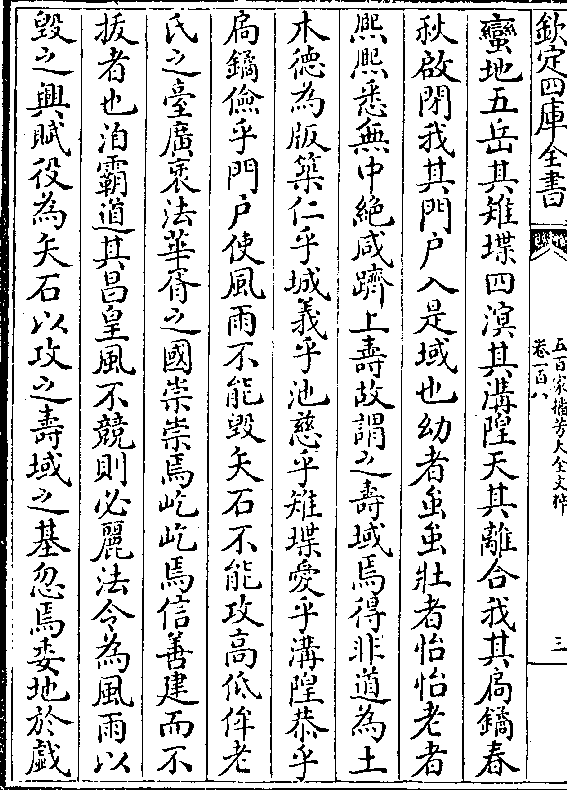 欽定四庫全書
五百家播芳大全文粹
卷一百八
三
蠻地五岳其雉堞四溟其溝隍天其離合我其扃鐍春
秋啟閉我其門戶入是域也幼者䖝䖝壯者怡怡老者
熙熙悉無中絶咸躋上壽故謂之壽域焉得非道為土
木德為版築仁乎城義乎池慈乎雉堞愛乎溝隍恭乎
扃鐍儉乎門戶使風雨不能毀矢石不能攻高低侔老
氏之臺廣袤法華胥之國崇崇焉屹屹焉信善建而不
拔者也洎霸道其昌皇風不競則必麗法令為風雨以
毀之興賦役為矢石以攻之壽域之基忽焉委地於戲